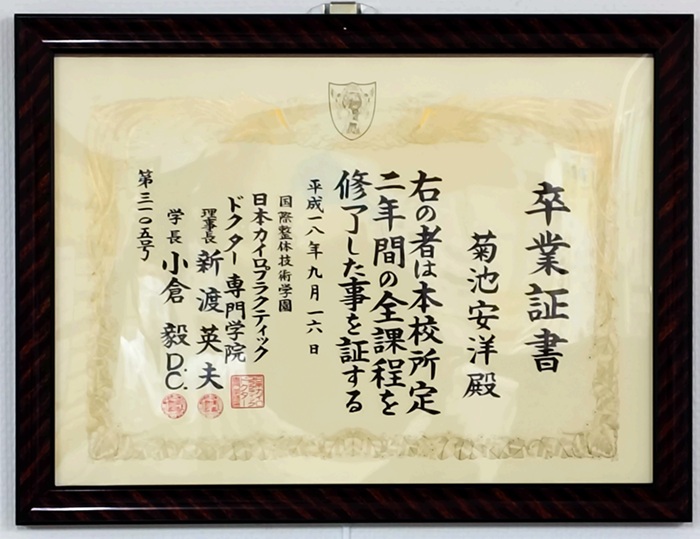 卒業証書
菊池安洋殿
右の者は本校所定
二年間の全課程を
修了した事を証する
平成一八年九月一六日
国際整体技術学園
日本カイロプラクティック
ドクター専門学院
理事長 新渡英夫
学長 小倉毅 D.C.
第三一〇五号